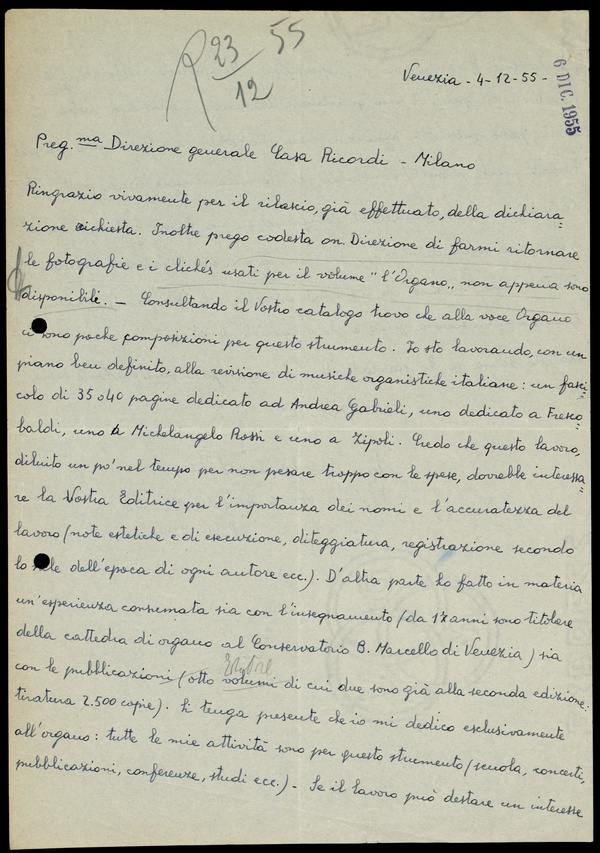 R 23/12 55
Venezia - 4-12-55 -
6 DIC. 1955
Preg.ma Direzione generale Casa Ricordi - Milano
Ringrazio vivamente per il rilascio, già effettuato, della dichiara=
zione richiesta. Inoltre prego codesta on. Direzione di farmi ritornare
le fotografie e i clichés usati per il volume "l'Organo" non appena sono
disponibili. - Consultando il Vostro catalogo trovo che alla voce Organo
ci sono poche composizioni per questo strumento. Io sto lavorando, con un
piano ben definito, alla revisione di musiche organistiche italiane: un fasci=
colo di 35 o 40 pagine dedicato ad Andrea Gabrieli, uno dedicato a Fresco=
baldi, uno a Michelangelo Rossi e uno a Zipoli. Credo che questo lavoro,
diluito un po' nel tempo per non pesare troppo con le spese, dovrebbe interessa=
re la Vostra Editrice per l'importanza dei nomi e l'accuratezza del
lavoro (note estetiche e di esecuzione, diteggiatura, registrazione secondo
lo stile dell'epoca di ogni autore ecc.). D'altra parte ho fatto in materia
un'esperienza consumata sia con l'insegnamento (da anni sono titolare
della cattedra di organo al Conservatorio B. Marcello di Venezia) sia
con le pubblicazioni (otto volumi di cui due sono già alla seconda edizione:
tiratura 2.500 copie). Si tenga presente che io mi dedico esclusivamente
all'organo: tutte le mie attività sono per questo strumento (scuola, concerti,
pubblicazioni, conferenze, studi ecc.) - Se il lavoro può destare un interesse